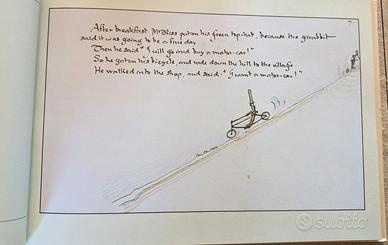 7
After breakfast Mr Bliss put on his green top-hat, because the girabbit
said it was going to be a fine day.
Then he said "I will go and buy a motor-car!"
So he got on his bicycle, and rode down the hill to the village
He walked into the shop, and said: "I want a motor-car!"
subito